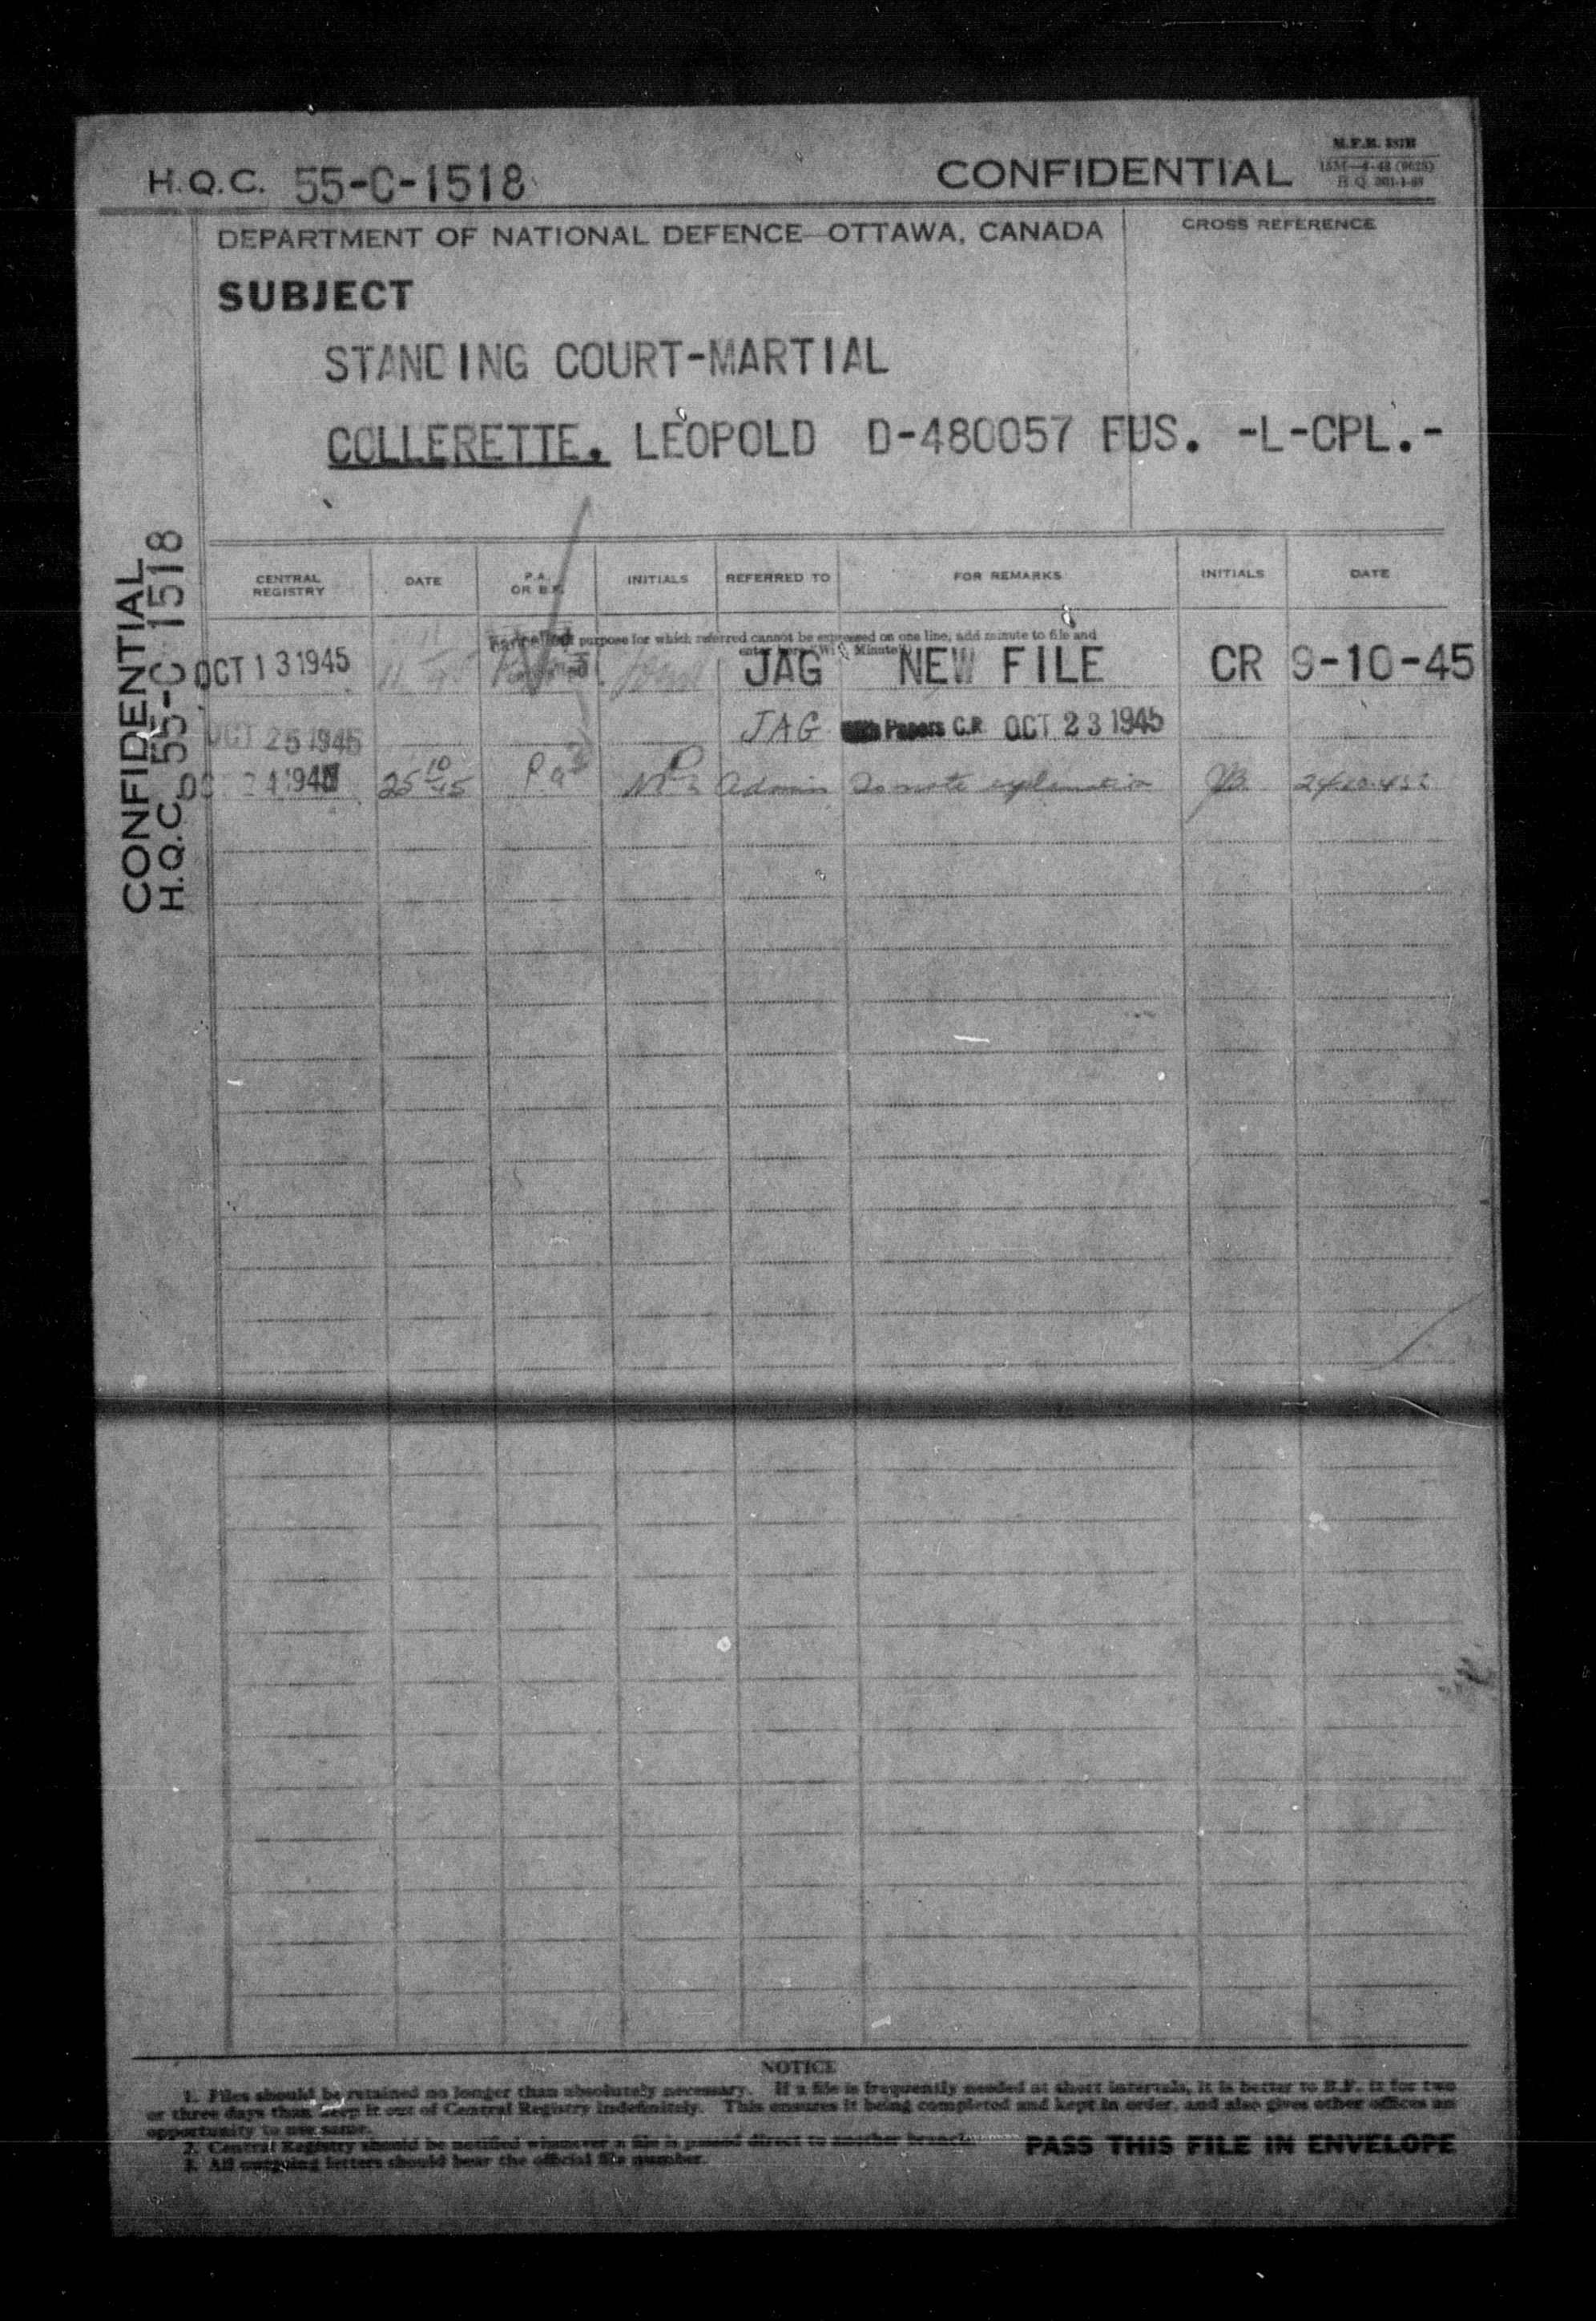 H.Q.C. 55-C-1518
CONFIDENTIAL
DEPARTMENT OF NATIONAL DEFENCE—OTTAWA, CANADA
CROSS REFERENCE
SUBJECT
STANDING COURT-MARTIAL
COLLERETTE. LEOPOLD D-480057 FUS. -L-CPL.-
CONFIDENTIAL
H.Q.C. 55-C 1518
CENTRAL REGISTRY DATE P.A. OR B.F. INITIALS REFERRED TO FOR REMARKS INITIALS DATE
purpose for which referred cannot be expressed on one line, add minute to file and
enter here Minute
OCT 13 1945 JAG NEW FILE CR 9-10-45
OCT 25 1945 JAG Papers C.R. OCT 23 1945
25 10/45 P.a Admin To note explanation
NOTICE
1. Files should be retained no longer than absolutely necessary. If a file is frequently needed at short intervals, it is better to B.F. it for two
or three days than keep it out of Central Registry indefinitely. This ensures it being completed and kept in order, and also gives other offices an
opportunity to use same.
2. Central Registry should be notified whenever a file is passed direct to another branch.
3. All outgoing letters should bear the official file number.
PASS THIS FILE IN ENVELOPE